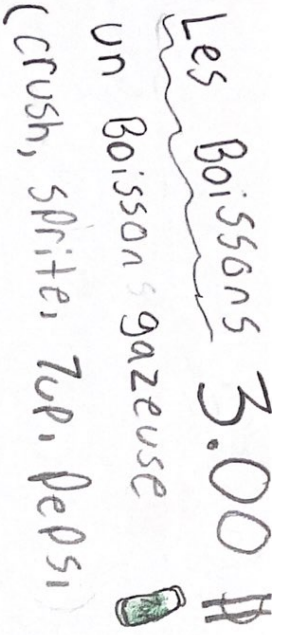 Les Boissons 3.00 $
un Boisson gazeuse
(crush, sprite, 7up, pepsi)